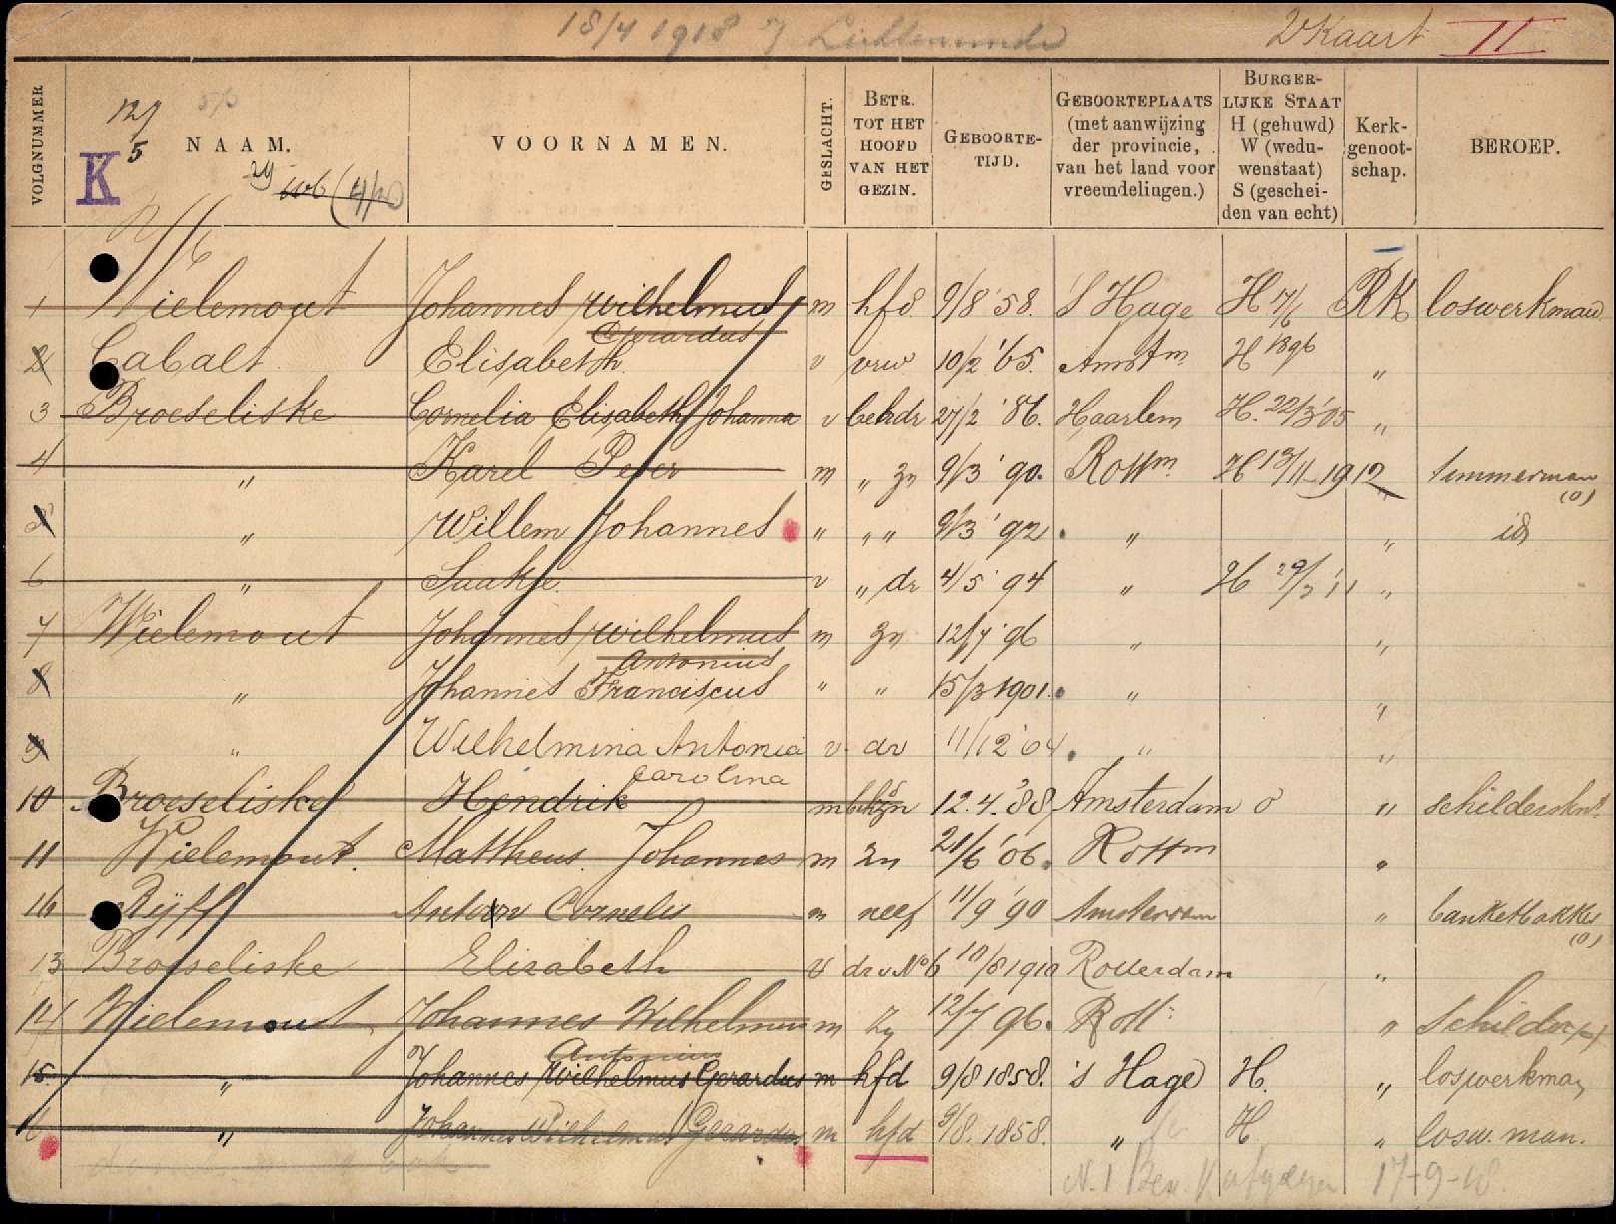 18/4 1918
2e Kaart II
VOLGNUMMER
NAAM.
VOORNAMEN.
GESLACHT.
BETR. TOT HET HOOFD VAN HET GEZIN.
GEBOORTE-TIJD.
GEBOORTEPLAATS (met aanwijzing der provincie, van het land voor vreemdelingen.)
BURGER-LIJKE STAAT H (gehuwd) W (wedu-wenstaat) S (geschei-den van echt)
Kerk-genoot-schap.
BEROEP.
12/5
K
1 Wielemout Johannes Wilhelmus m hfd 9/8 '58. 's Hage H RK loswerkman
Gerardus
2 Cabalt Elisabeth v vrw 10/2 '65. Amstm H 1896 "
3 Broeseliske Cornelia Elisabeth Johanna v behdr 27/2 '86. Haarlem H. 22/3 '05 "
4 " Karel Peter m " zn 9/3 '90. Rottm H 13/11 1912 " timmerman (o)
5 " Willem Johannes " " " 9/3 '92. " " id
6 " Saakje v " dr 4/5 '94 " H "
7 Wielemout Johannes Wilhelmus m zn 12/7 '96 " "
Antonius
8 " Johannes Franciscus " " 15/3 1901. " "
9 " Wilhelmina Antonia v dr 11/12 '04. " "
Carolina
10 Broeseliske Hendrik m behzn 12.4.'88 Amsterdam o " schildersknt
11 Wielemout. Mattheus Johannes m zn 21/6 '06. Rottm "
Rijff Anton Cornelis m neef 11/9 '90 Amsterdam " banketbakker (o)
13 Broeseliske Elisabeth v dr v No 6 10/8 1910 Rotterdam "
14 Wielemout Johannes Wilhelmus m zn 12/7 96. Rott: " schilder
Antonius
15 " Johannes Wilhelmus Gerardus m hfd 9/8 1858. 's Hage H. " loswerkman
" Johannes Wilhelmus Gerardus m hfd 9/8. 1858. " H " losw. man.
17-9-18.